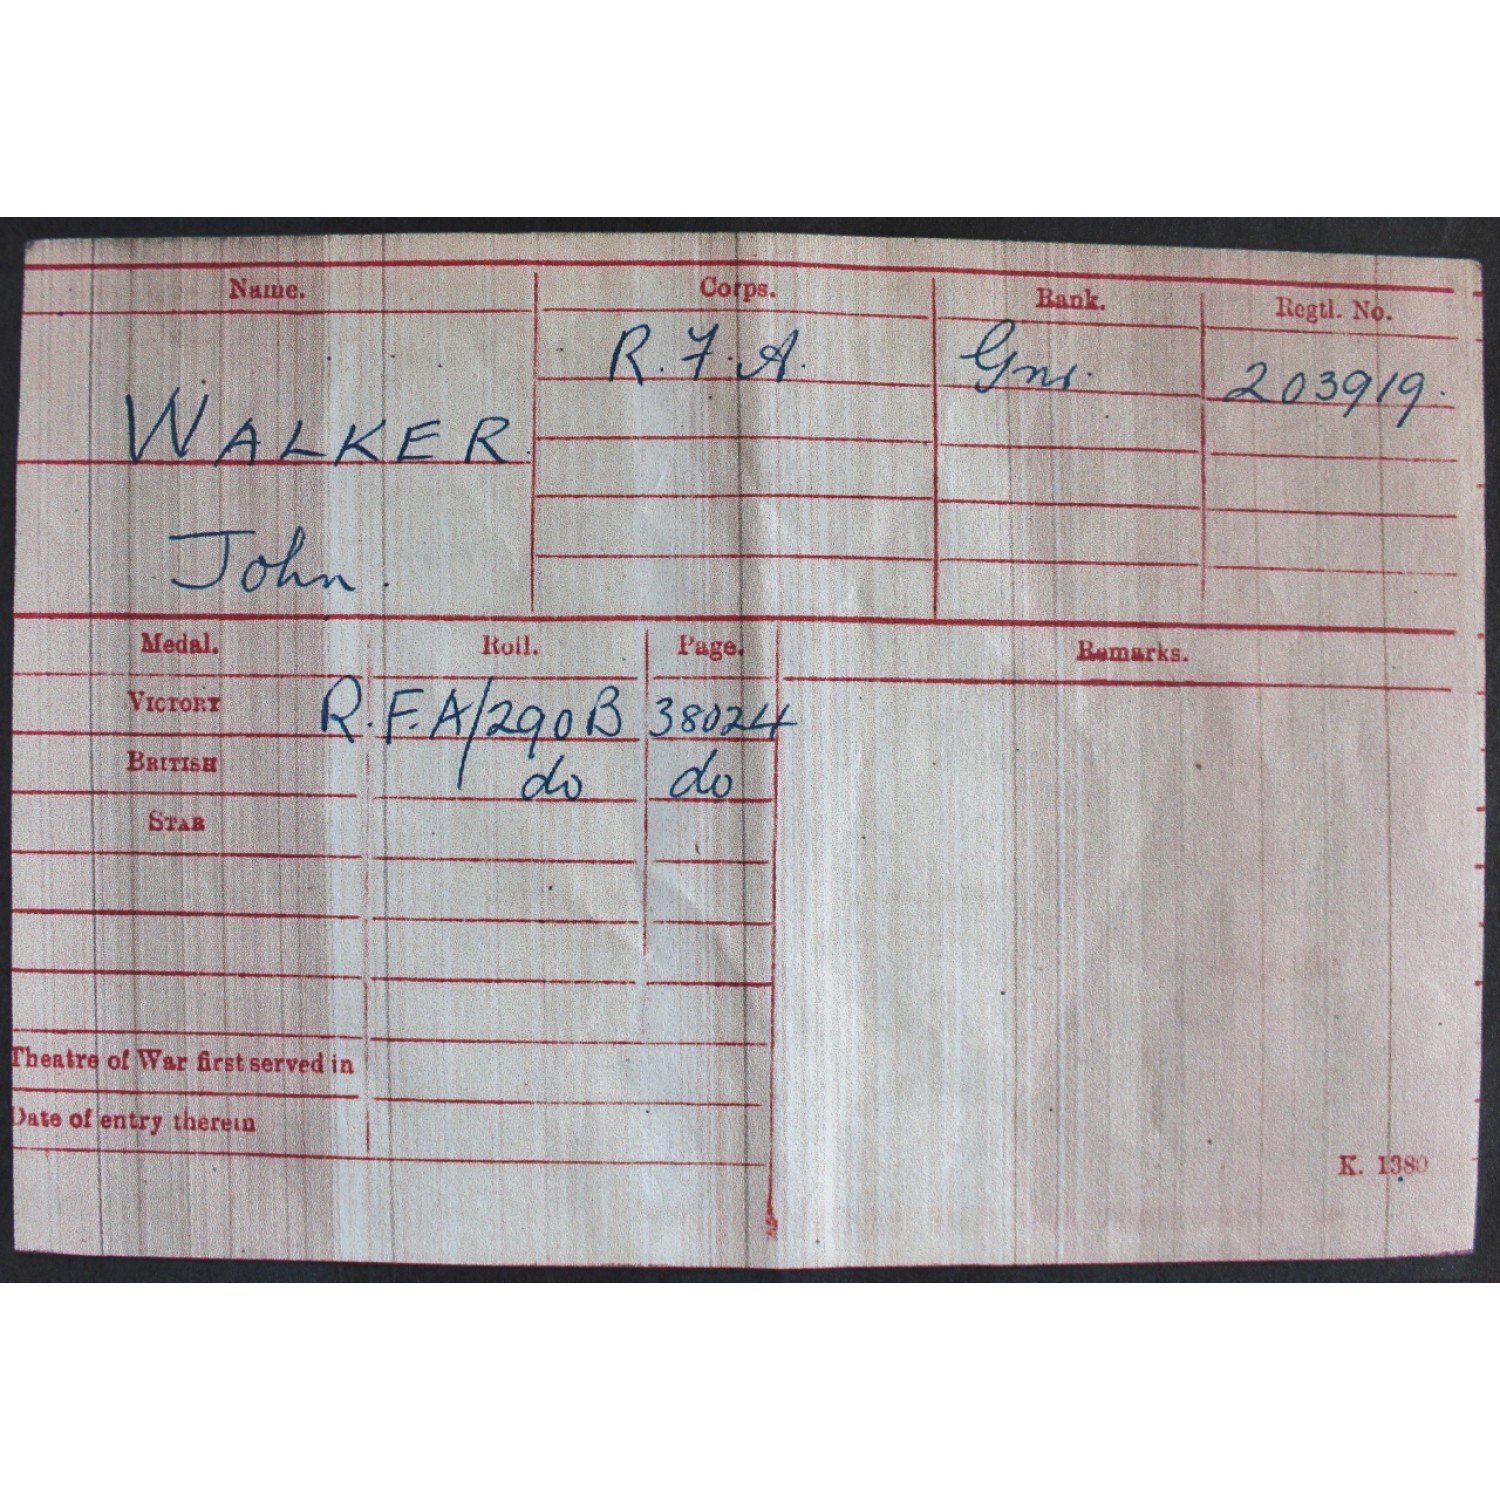 Name. Corps. Rank. Regtl. No.
R.F.A. Gnr. 203919.
WALKER.
John.
Medal. Roll. Page. Remarks.
VICTORY R.F.A/290B 38024
BRITISH do do
STAR
Theatre of War first served in
Date of entry therein
K. 1380